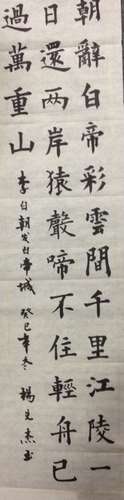 朝辭白帝彩雲間千里江陵一
日還两岸猿聲啼不住輕舟已
過萬重山 李白朝发白帝城 癸巳年冬 楊先杰书